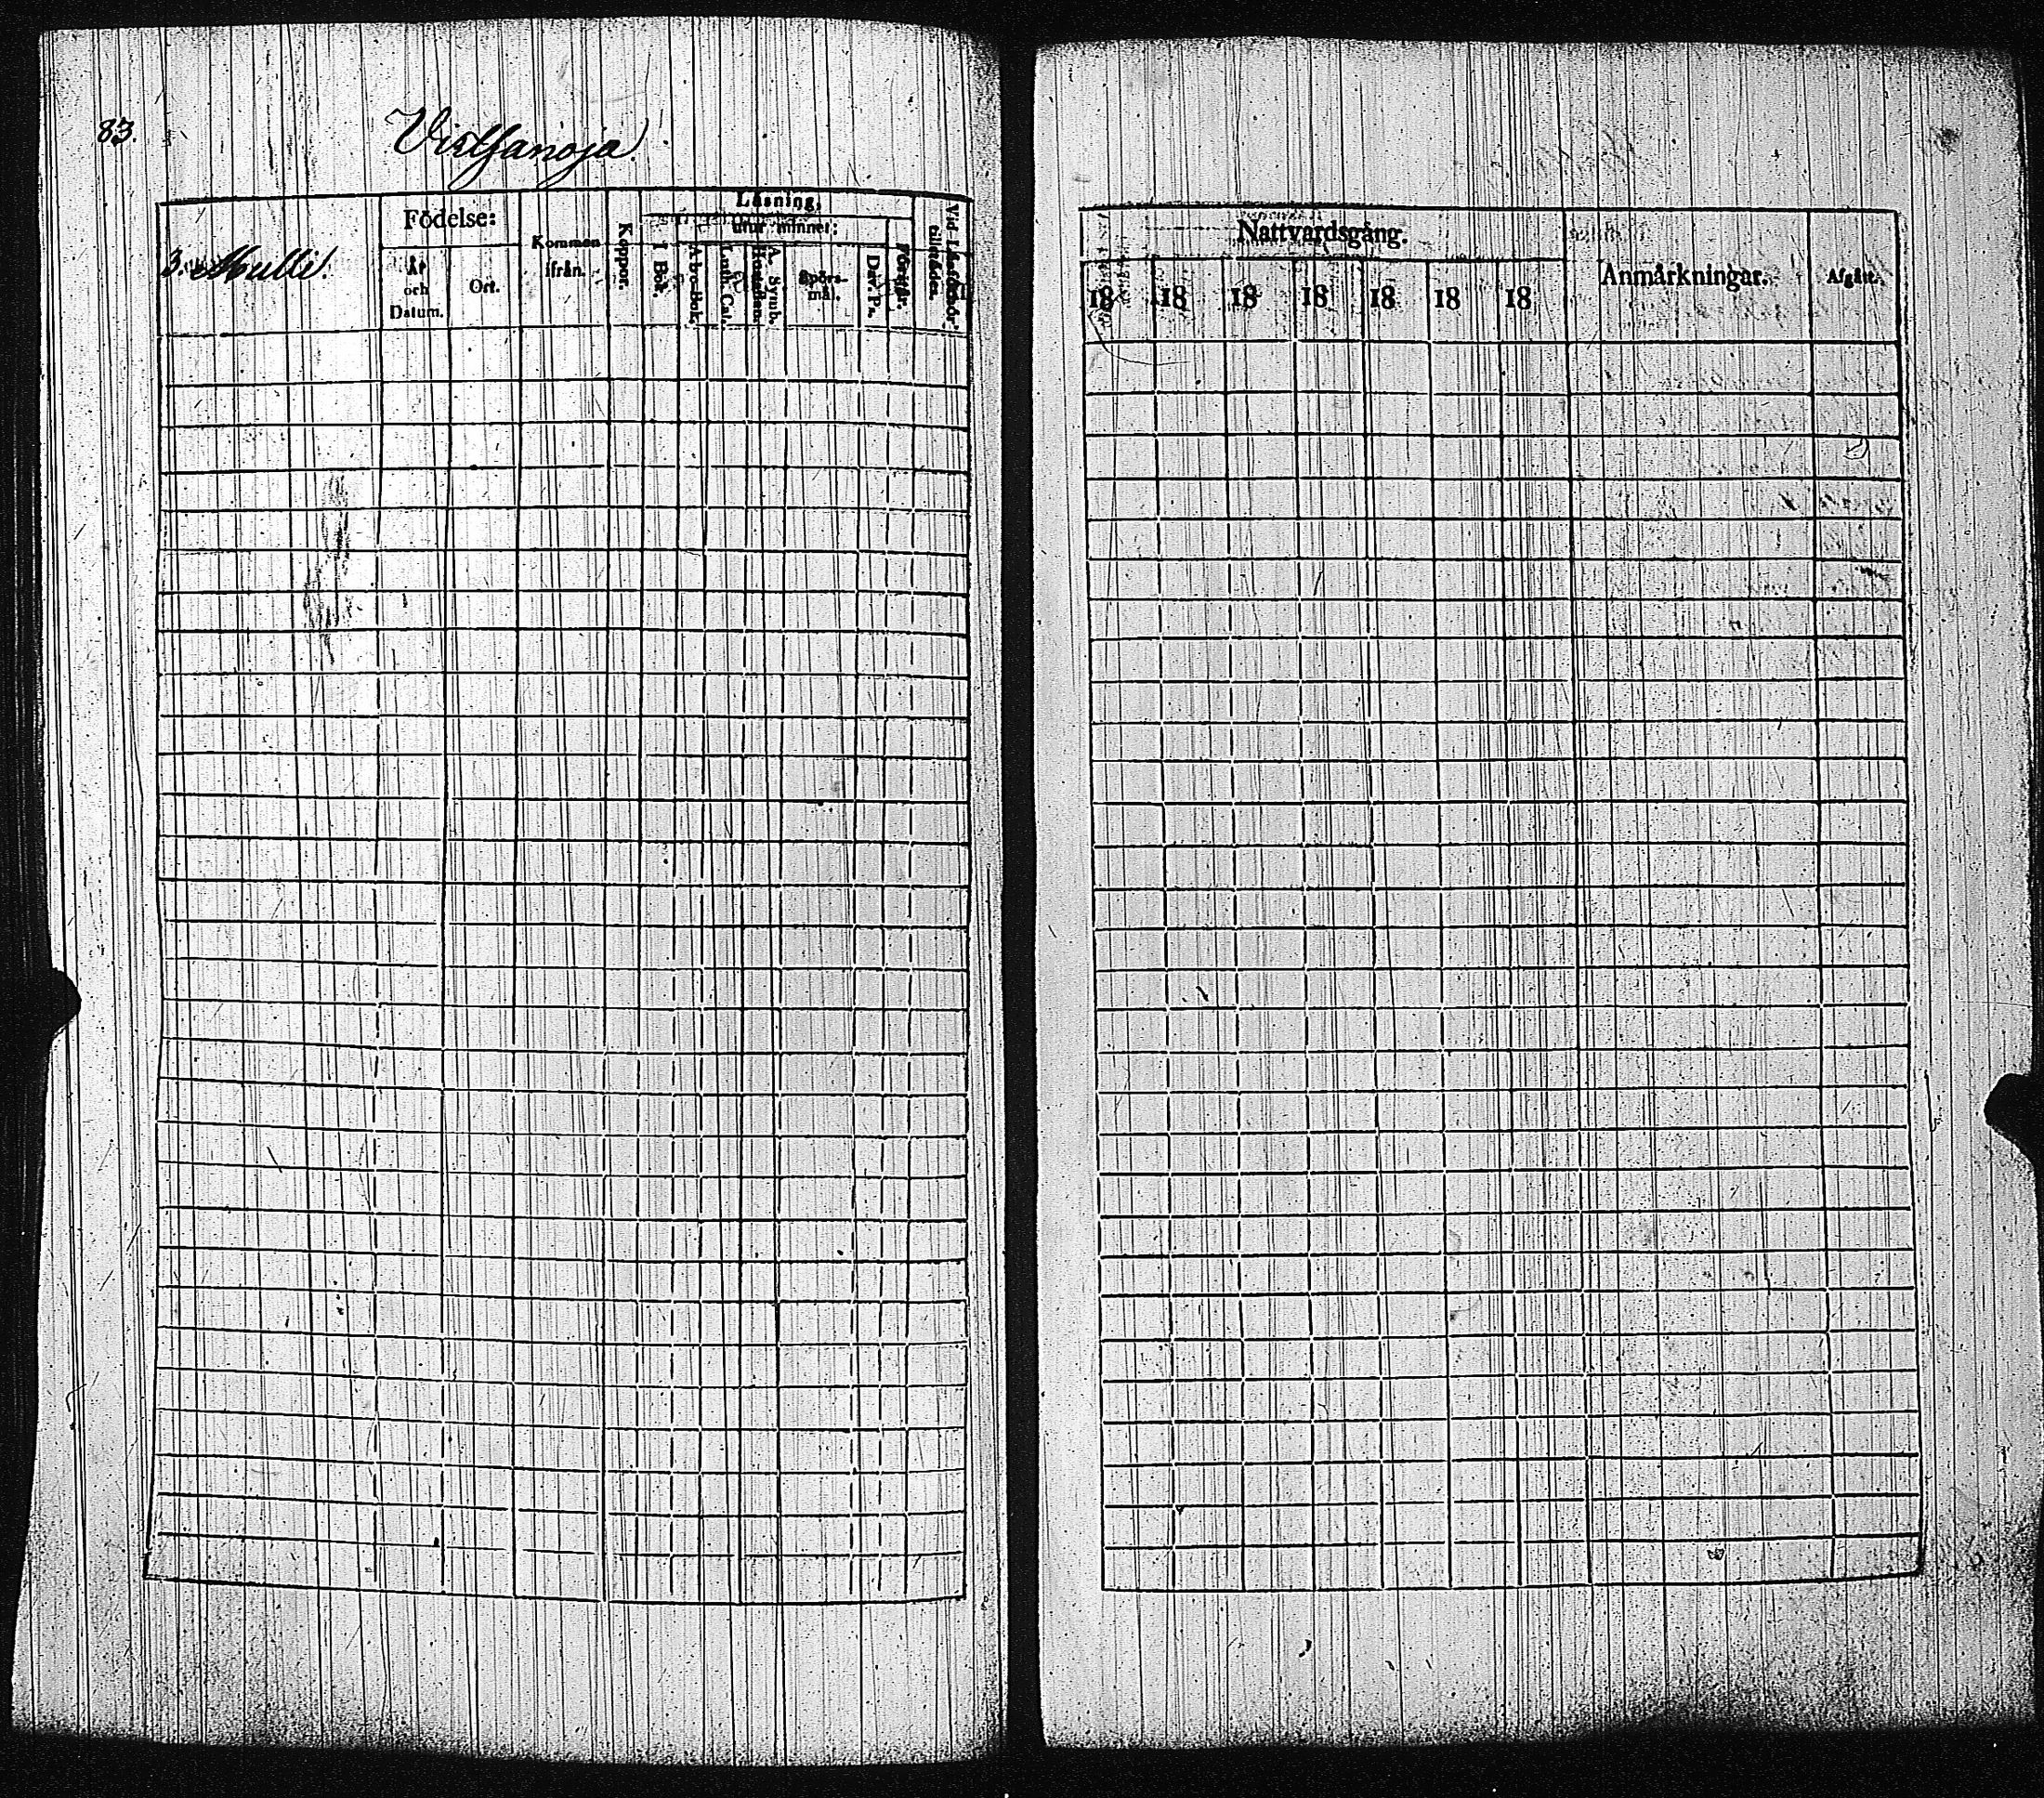 83.
Vistsanoja.
3. Mulli.
Födelse:
År och Datum.
Ort.
Kommen ifrån.
Koppor.
Läsning,
utur minnet:
I Bok.
Abc-Bok.
Luth. Cat.
A. Symb.
Spörs-
mål.
Dav. Ps.
Förstår.
Nattvardsgång.
18 18 18 18 18 18 18
Anmärkningar.
Afgått.